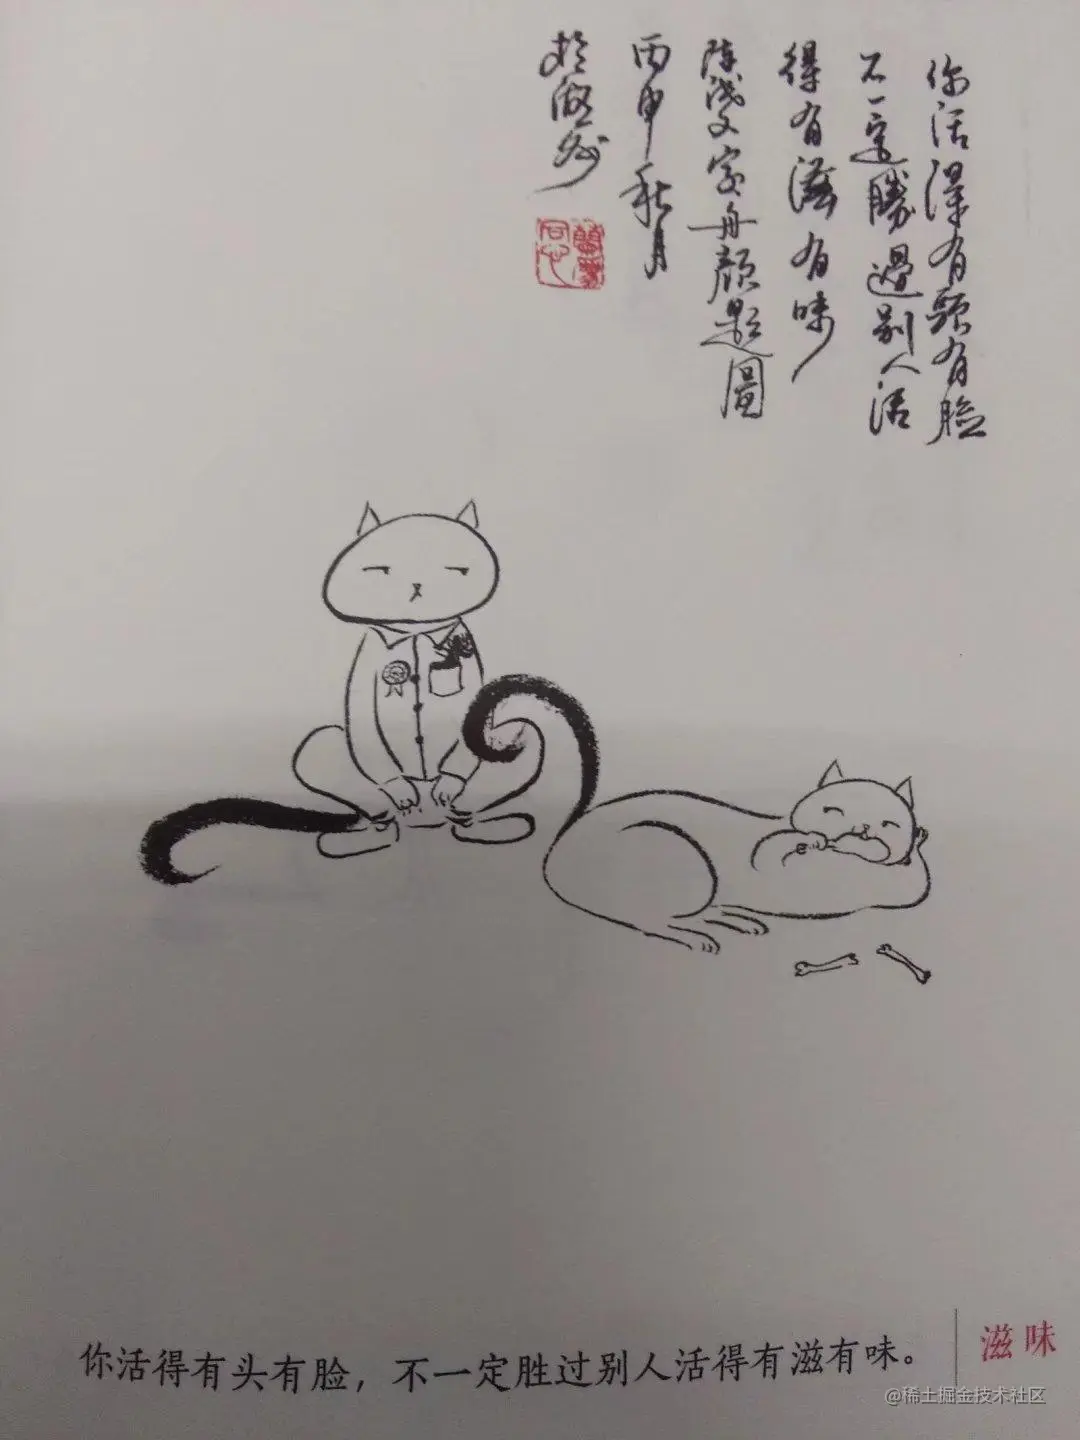 你活得有頭有臉
不一定勝過别人活
得有滋有味
陳茂文字舟顔題圖
丙申秋月
於
你活得有头有脸，不一定胜过别人活得有滋有味。
滋味
@稀土掘金技术社区